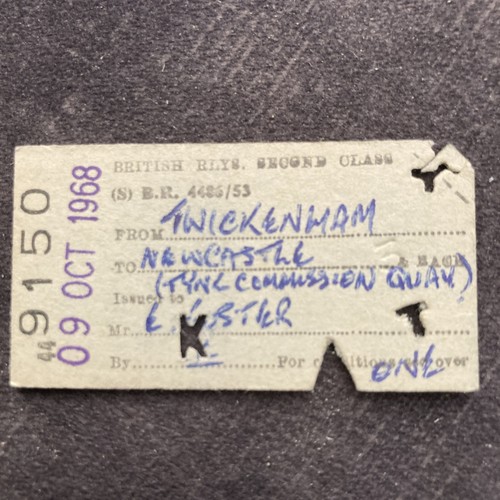 BRITISH RLYS. SECOND CLASS
(S) B.R. 4486/53
FROM TWICKENHAM
TO NEWCASTLE & BACK
(TYNE COMMISSION QUAY)
Issued to
Mr.
By II For over
ONE
44 9150
09 OCT 1968